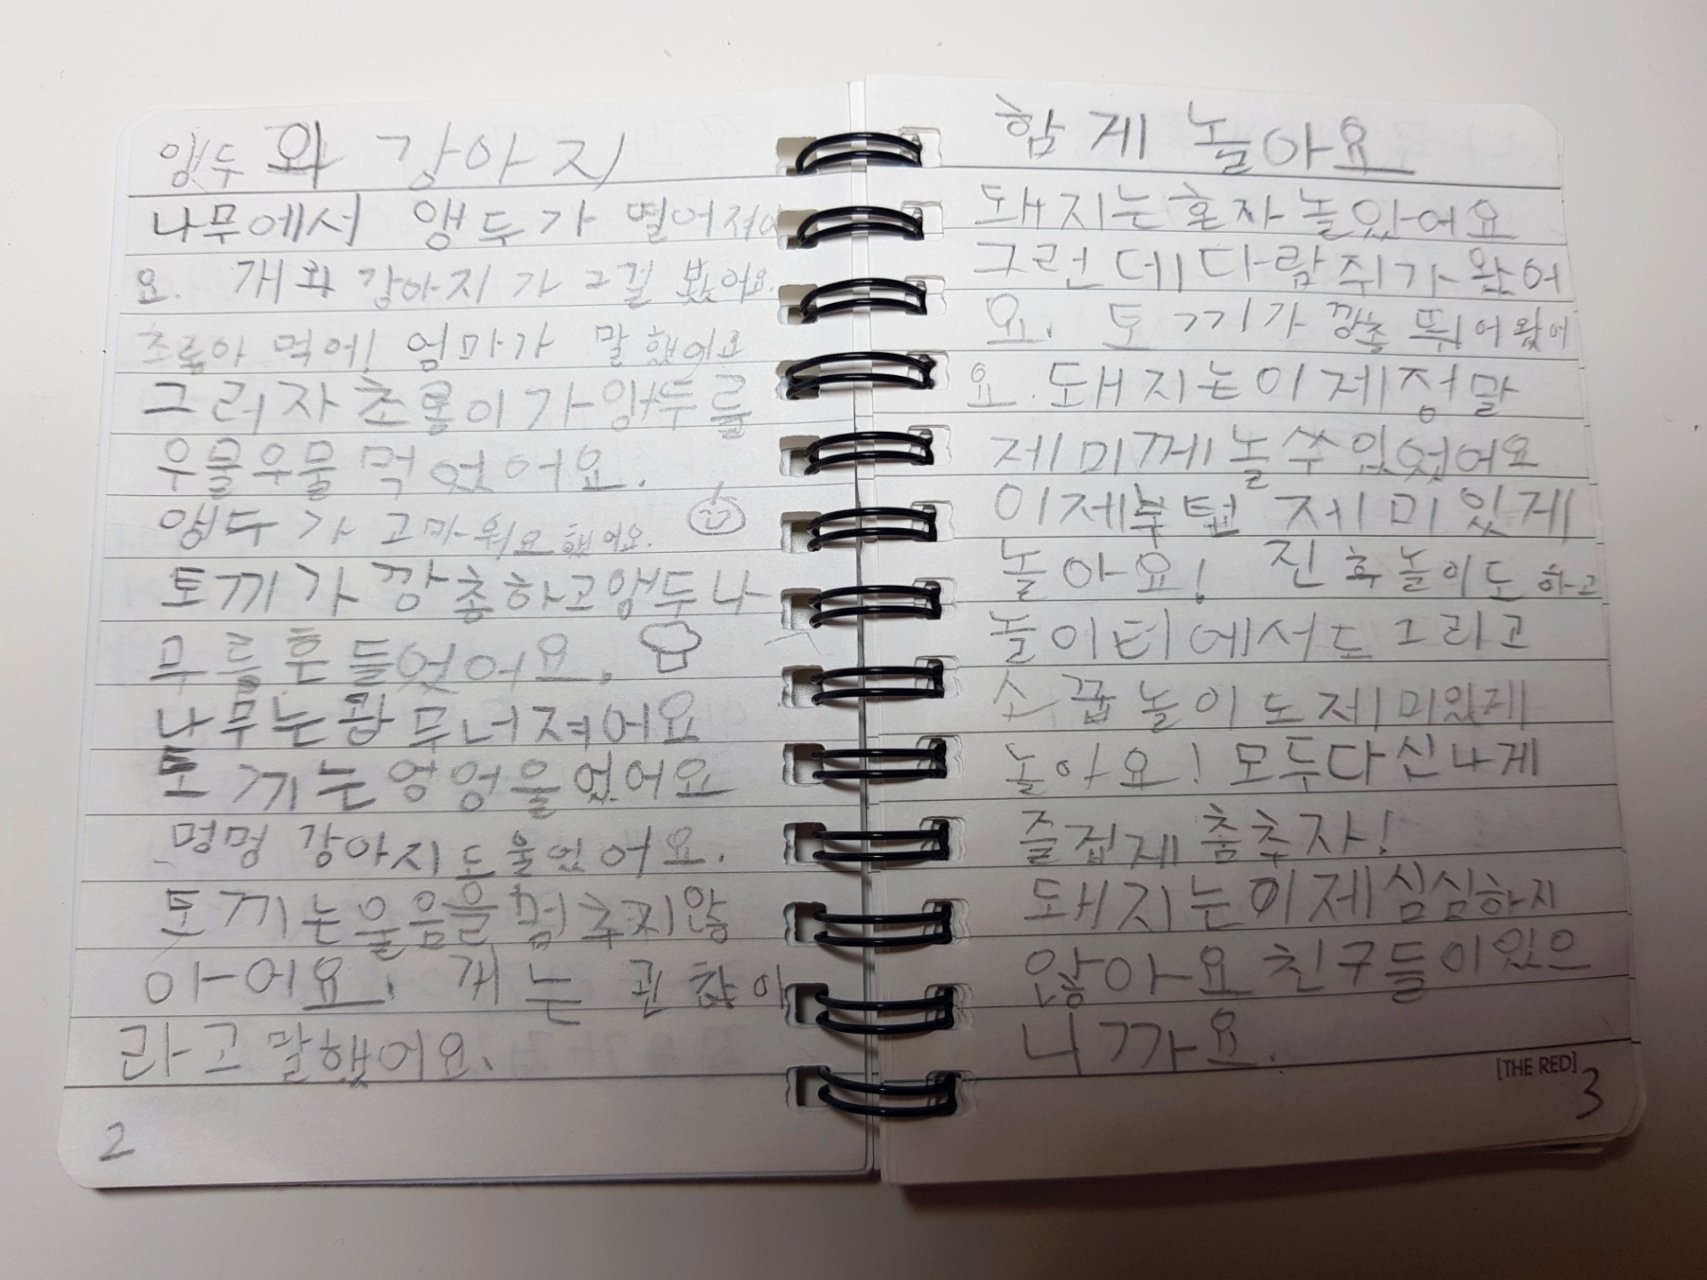 앵두와 강아지
나무에서 앵두가 떨어저어
요. 개와 강아지가 그길 봤어요.
초롱아 먹어! 엄마가 말했어요
그러자 초롱이가 앵두를
우물우물 먹었어요.
앵두가 고마워요 했어요.
토끼가 깡총하고 앵두나
무를 흔들었어요.
나무는 쾅 무너져어요
토끼는 엉엉 울었어요
멍멍 강아지도 울었어요.
토끼는 울음을 멈추지 않
아어요. 개는 괸찮아
라고 말했어요.
2
함게 놀아요
돼지는 혼자 놀았어요
그런데 다람쥐가 왔어
요. 토끼가 깡총 뛰어왔어
요. 돼지는 이제 정말
제미께 놀 쑤 있었어요
이제부텁 제미있게
놀아요! 진흑놀이도 하고
놀이터에서도 그리고
소꿉놀이도 제미있게
놀아요! 모두다 신나게
즐겁게 춤추자!
돼지는 이제 심심하지
않아요 친구들이 있으
니까요.
[THE RED]
3